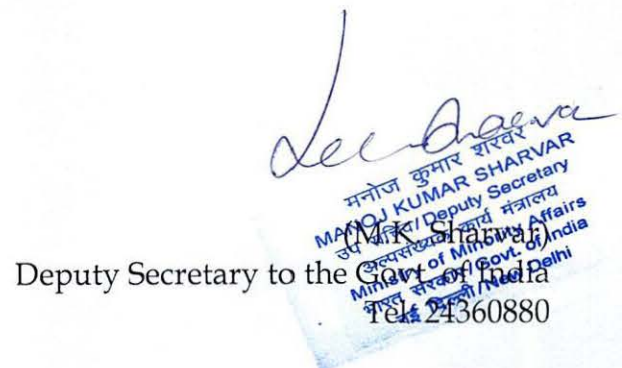 मनोज कुमार शरवर
MANOJ KUMAR SHARVAR
उप सचिव/Deputy Secretary
अल्पसंख्यक कार्य मंत्रालय
Ministry of Minority Affairs
भारत सरकार/Govt. of India
नई दिल्ली/New Delhi
(M.K. Sharvar)
Deputy Secretary to the Govt. of India
Tel: 24360880